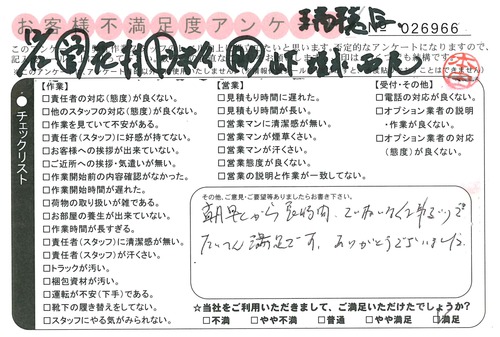 お客様不満足度アンケ
瑞穂店
No 026966
チェックリスト
【作業】
□責任者の対応(態度)が良くない。
□他のスタッフの対応(態度)が良くない。
□作業を見ていて不安がある。
□責任者(スタッフ)に好感が持てない。
□お客様への挨拶が出来ていない。
□ご近所への挨拶・気遣いが無い。
□作業開始前の内容確認がなかった。
□作業開始時間が遅れた。
□荷物の取り扱いが雑である。
□お部屋の養生が出来ていない。
□作業時間が長すぎる。
□責任者(スタッフ)に清潔感が無い。
□責任者(スタッフ)が汗くさい。
□トラックが汚い。
□梱包資材が汚い。
□運転が不安(下手)である。
□靴下の履き替えをしてない。
□スタッフにやる気がみられない。
【営業】
□見積もり時間に遅れた。
□見積もり時間が長い。
□営業マンに清潔感が無い。
□営業マンが煙草くさい。
□営業マンが汗くさい。
□営業態度が良くない。
□営業の説明と作業が一致してない。
【受付・その他】
□電話の対応が良くない。
□オプション業者の説明
・作業が良くない。
□オプション業者の対応
(態度)が良くない。
その他、ご意見・ご要望等ありましたらお書き下さい。
朝早くから
たいへん満足です。ありがとうございました。
☆当社をご利用いただきまして、ご満足いただけたでしょうか?
□不満 □やや不満 □普通 □やや満足 □満足